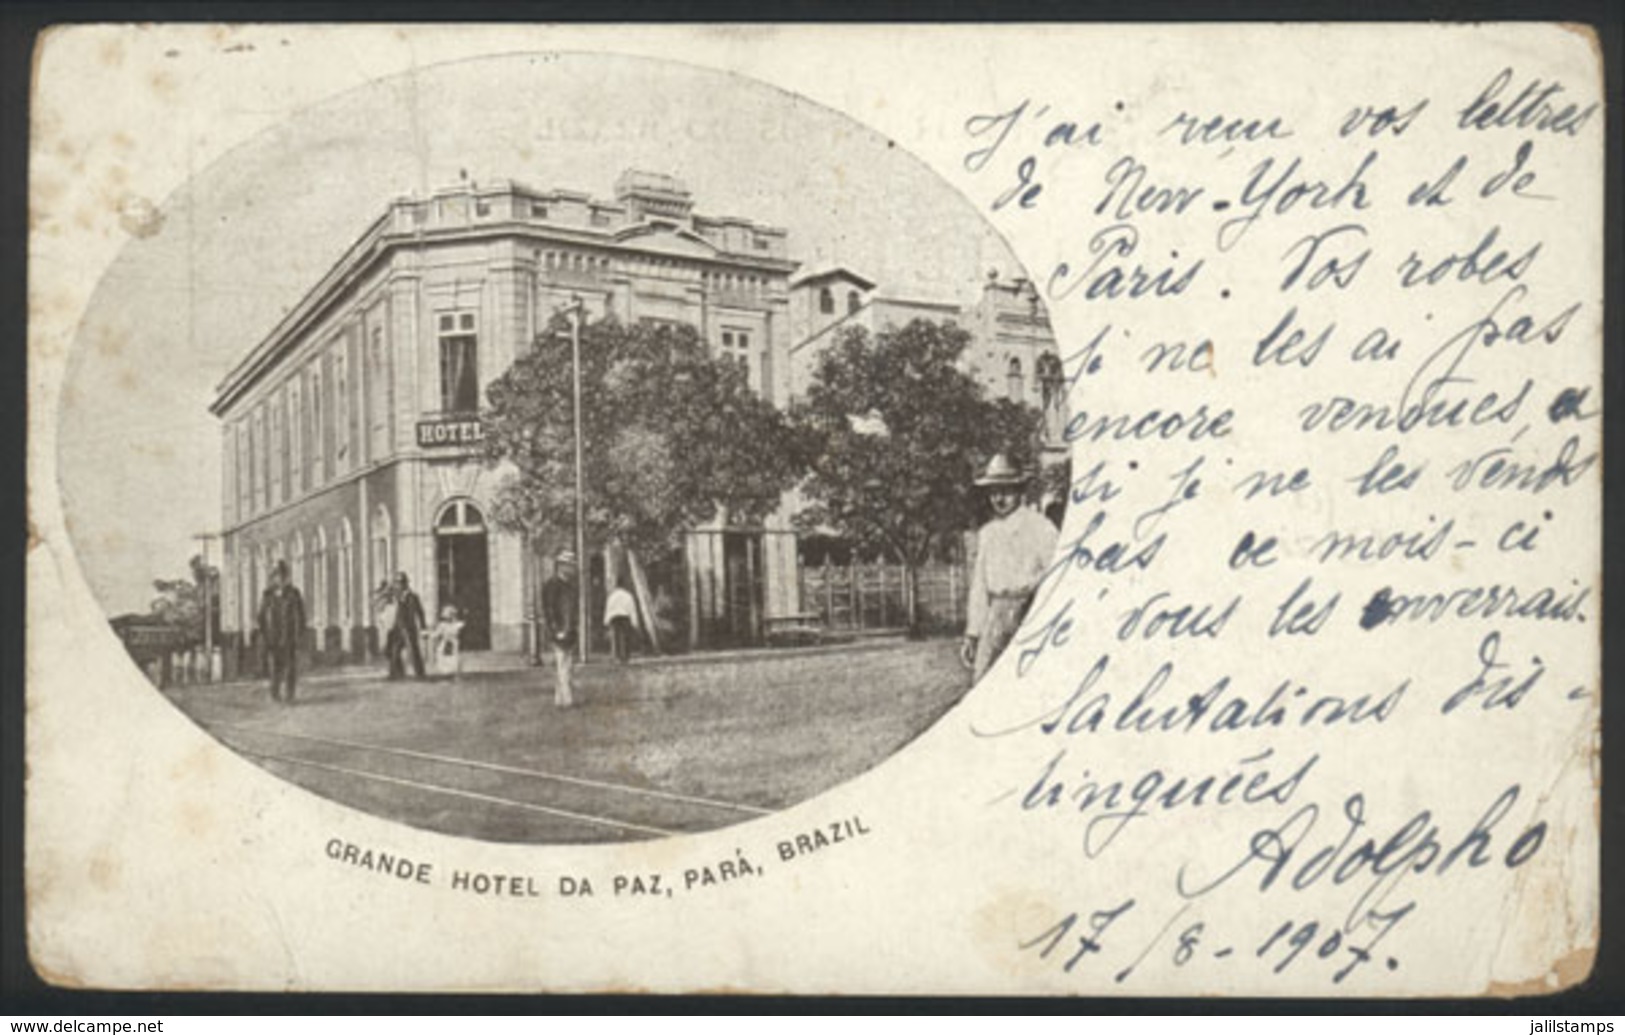 HOTEL
GRANDE HOTEL DA PAZ, PARÁ, BRAZIL
J'ai reçu vos lettres
de New-York et de
Paris. Vos robes
je ne les ai pas
encore vendues, et
si je ne les vends
pas ce mois-ci
je vous les enverrais.
Salutations dis-
tinguées
Adolpho
17/8-1907.
www.delcampe.net
jalilstamps